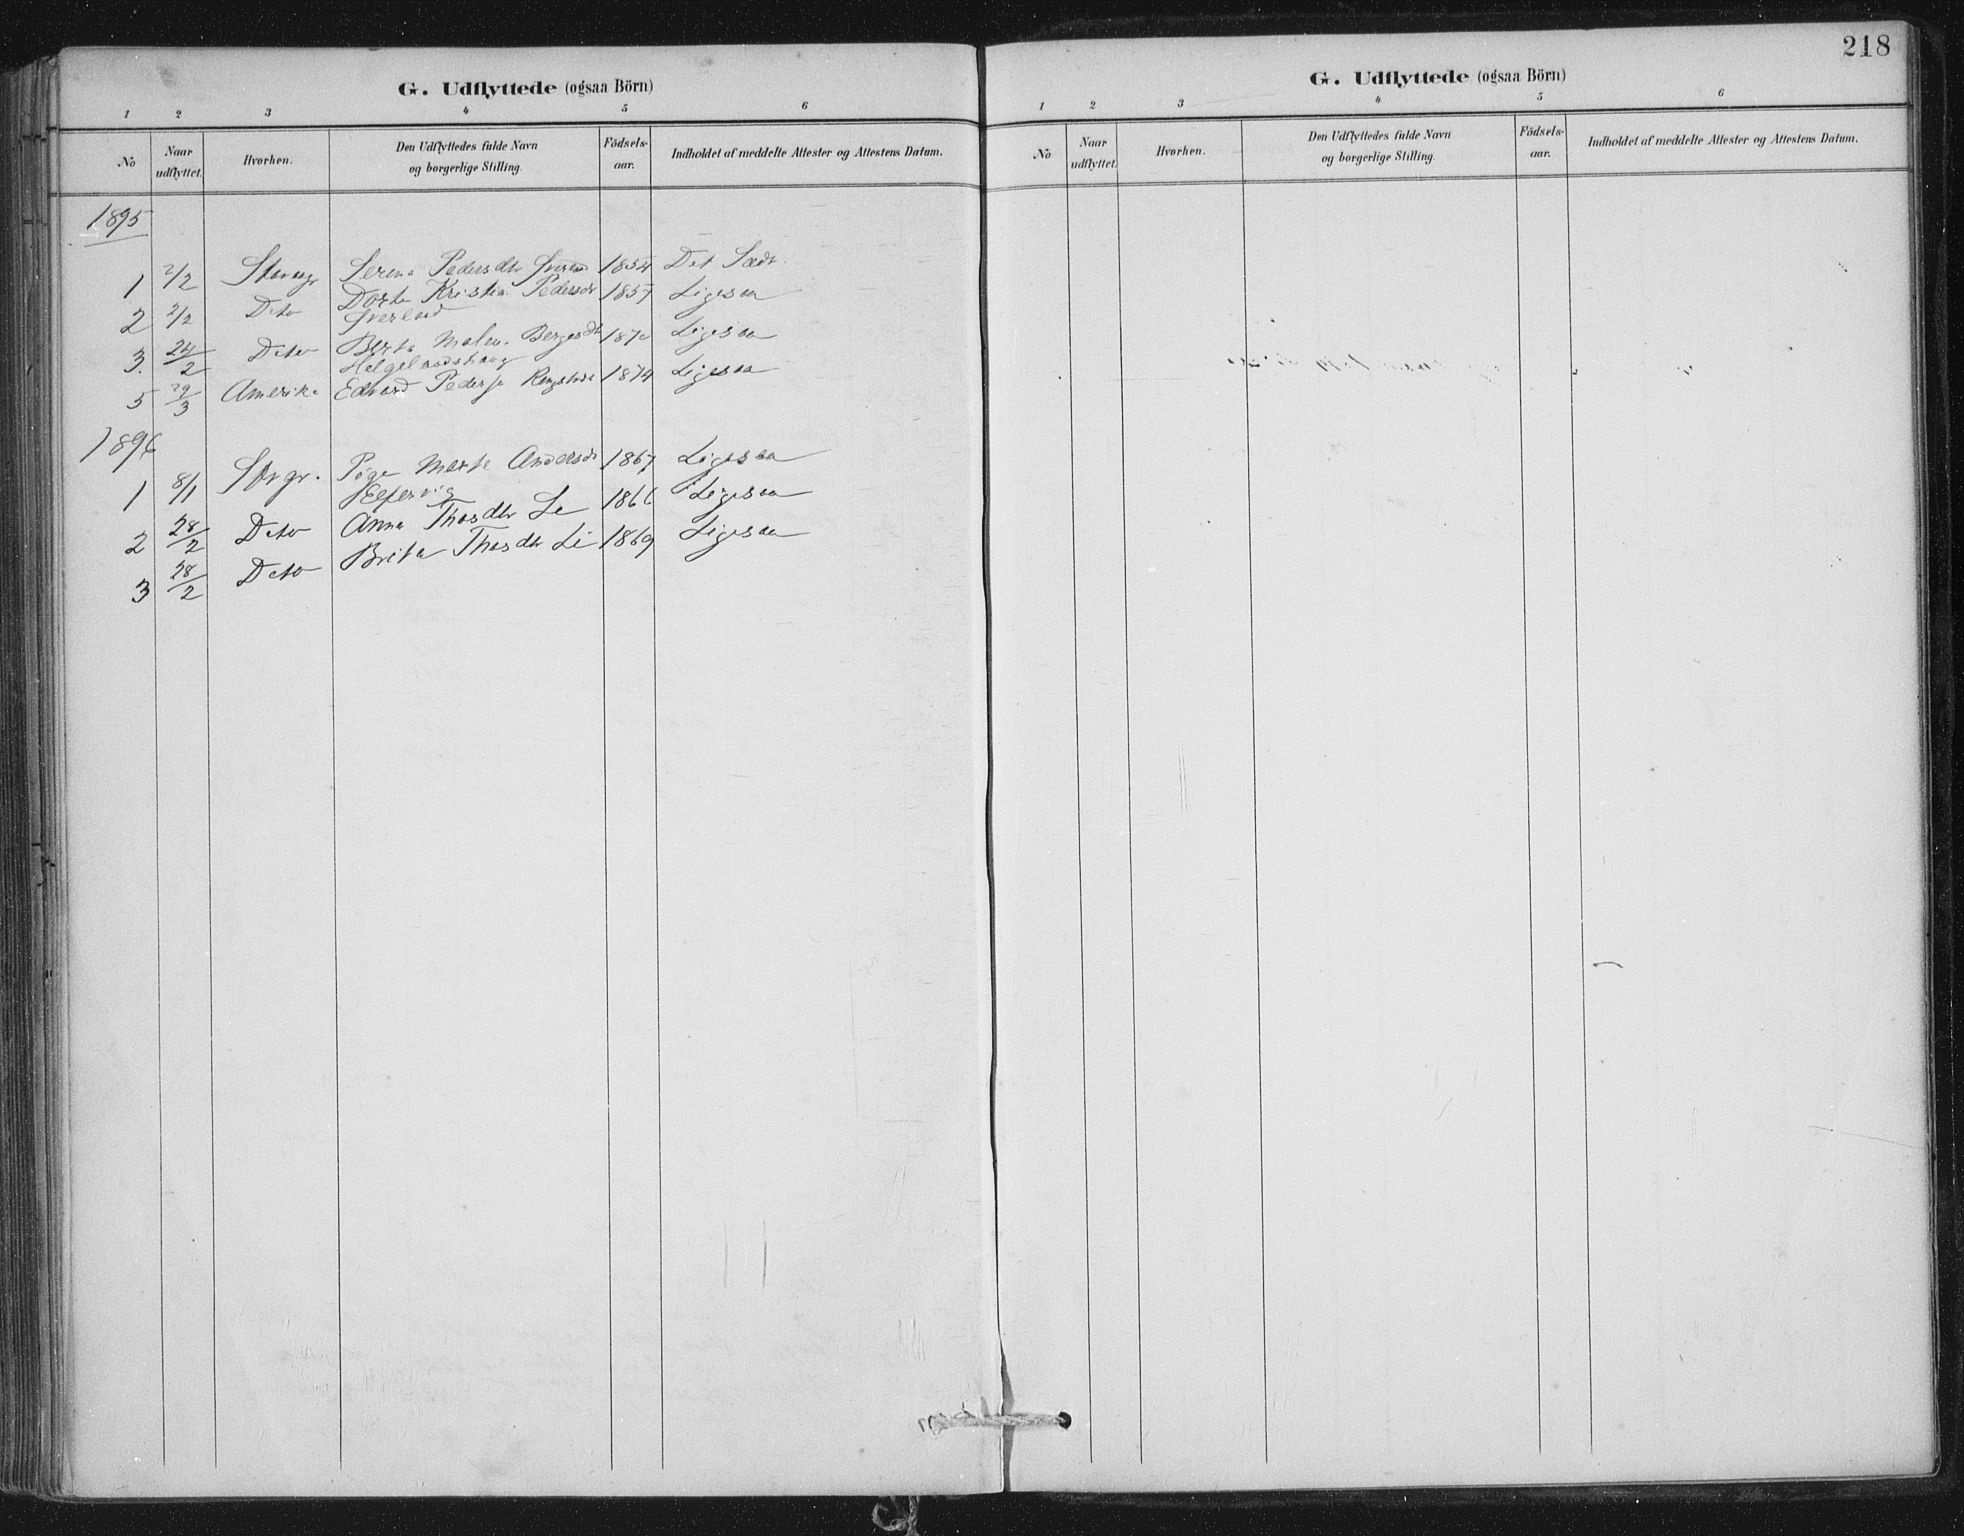 G. Udflyttede (ogsaa Börn)
1 2 3 4 5 6
No Naar udflyttet. Hvorhen. Den Udflyttedes fulde Navn og borgerlige Stilling. Födsels-aar. Indholdet af meddelte Attester og Attestens Datum.
1895
1 2/2 Pedersdtr 1854 Det Sædv.
2 2/2 Deto Dorte Kristin Pedersdr 1857 Ligesaa
3. 24/2 Deto Berta Malen Bergesdtr 1870 Ligesaa
Helgelandshaug
5 29/3 Amerika Edvard Peders 1874 Ligesaa
1896
1 8/1 Marte Andersdr 1867 Ligesaa
2 28/2 Deto Anna Thosdtr 1866 Ligesaa
3 28/2 Deto Brita Thosdtr Li 1869 Ligesaa
218
G. Udflyttede (ogsaa Börn)
1 2 3 4 5 6
No Naar udflyttet. Hvorhen. Den Udflyttedes fulde Navn og borgerlige Stilling. Födsels-aar. Indholdet af meddelte Attester og Attestens Datum.